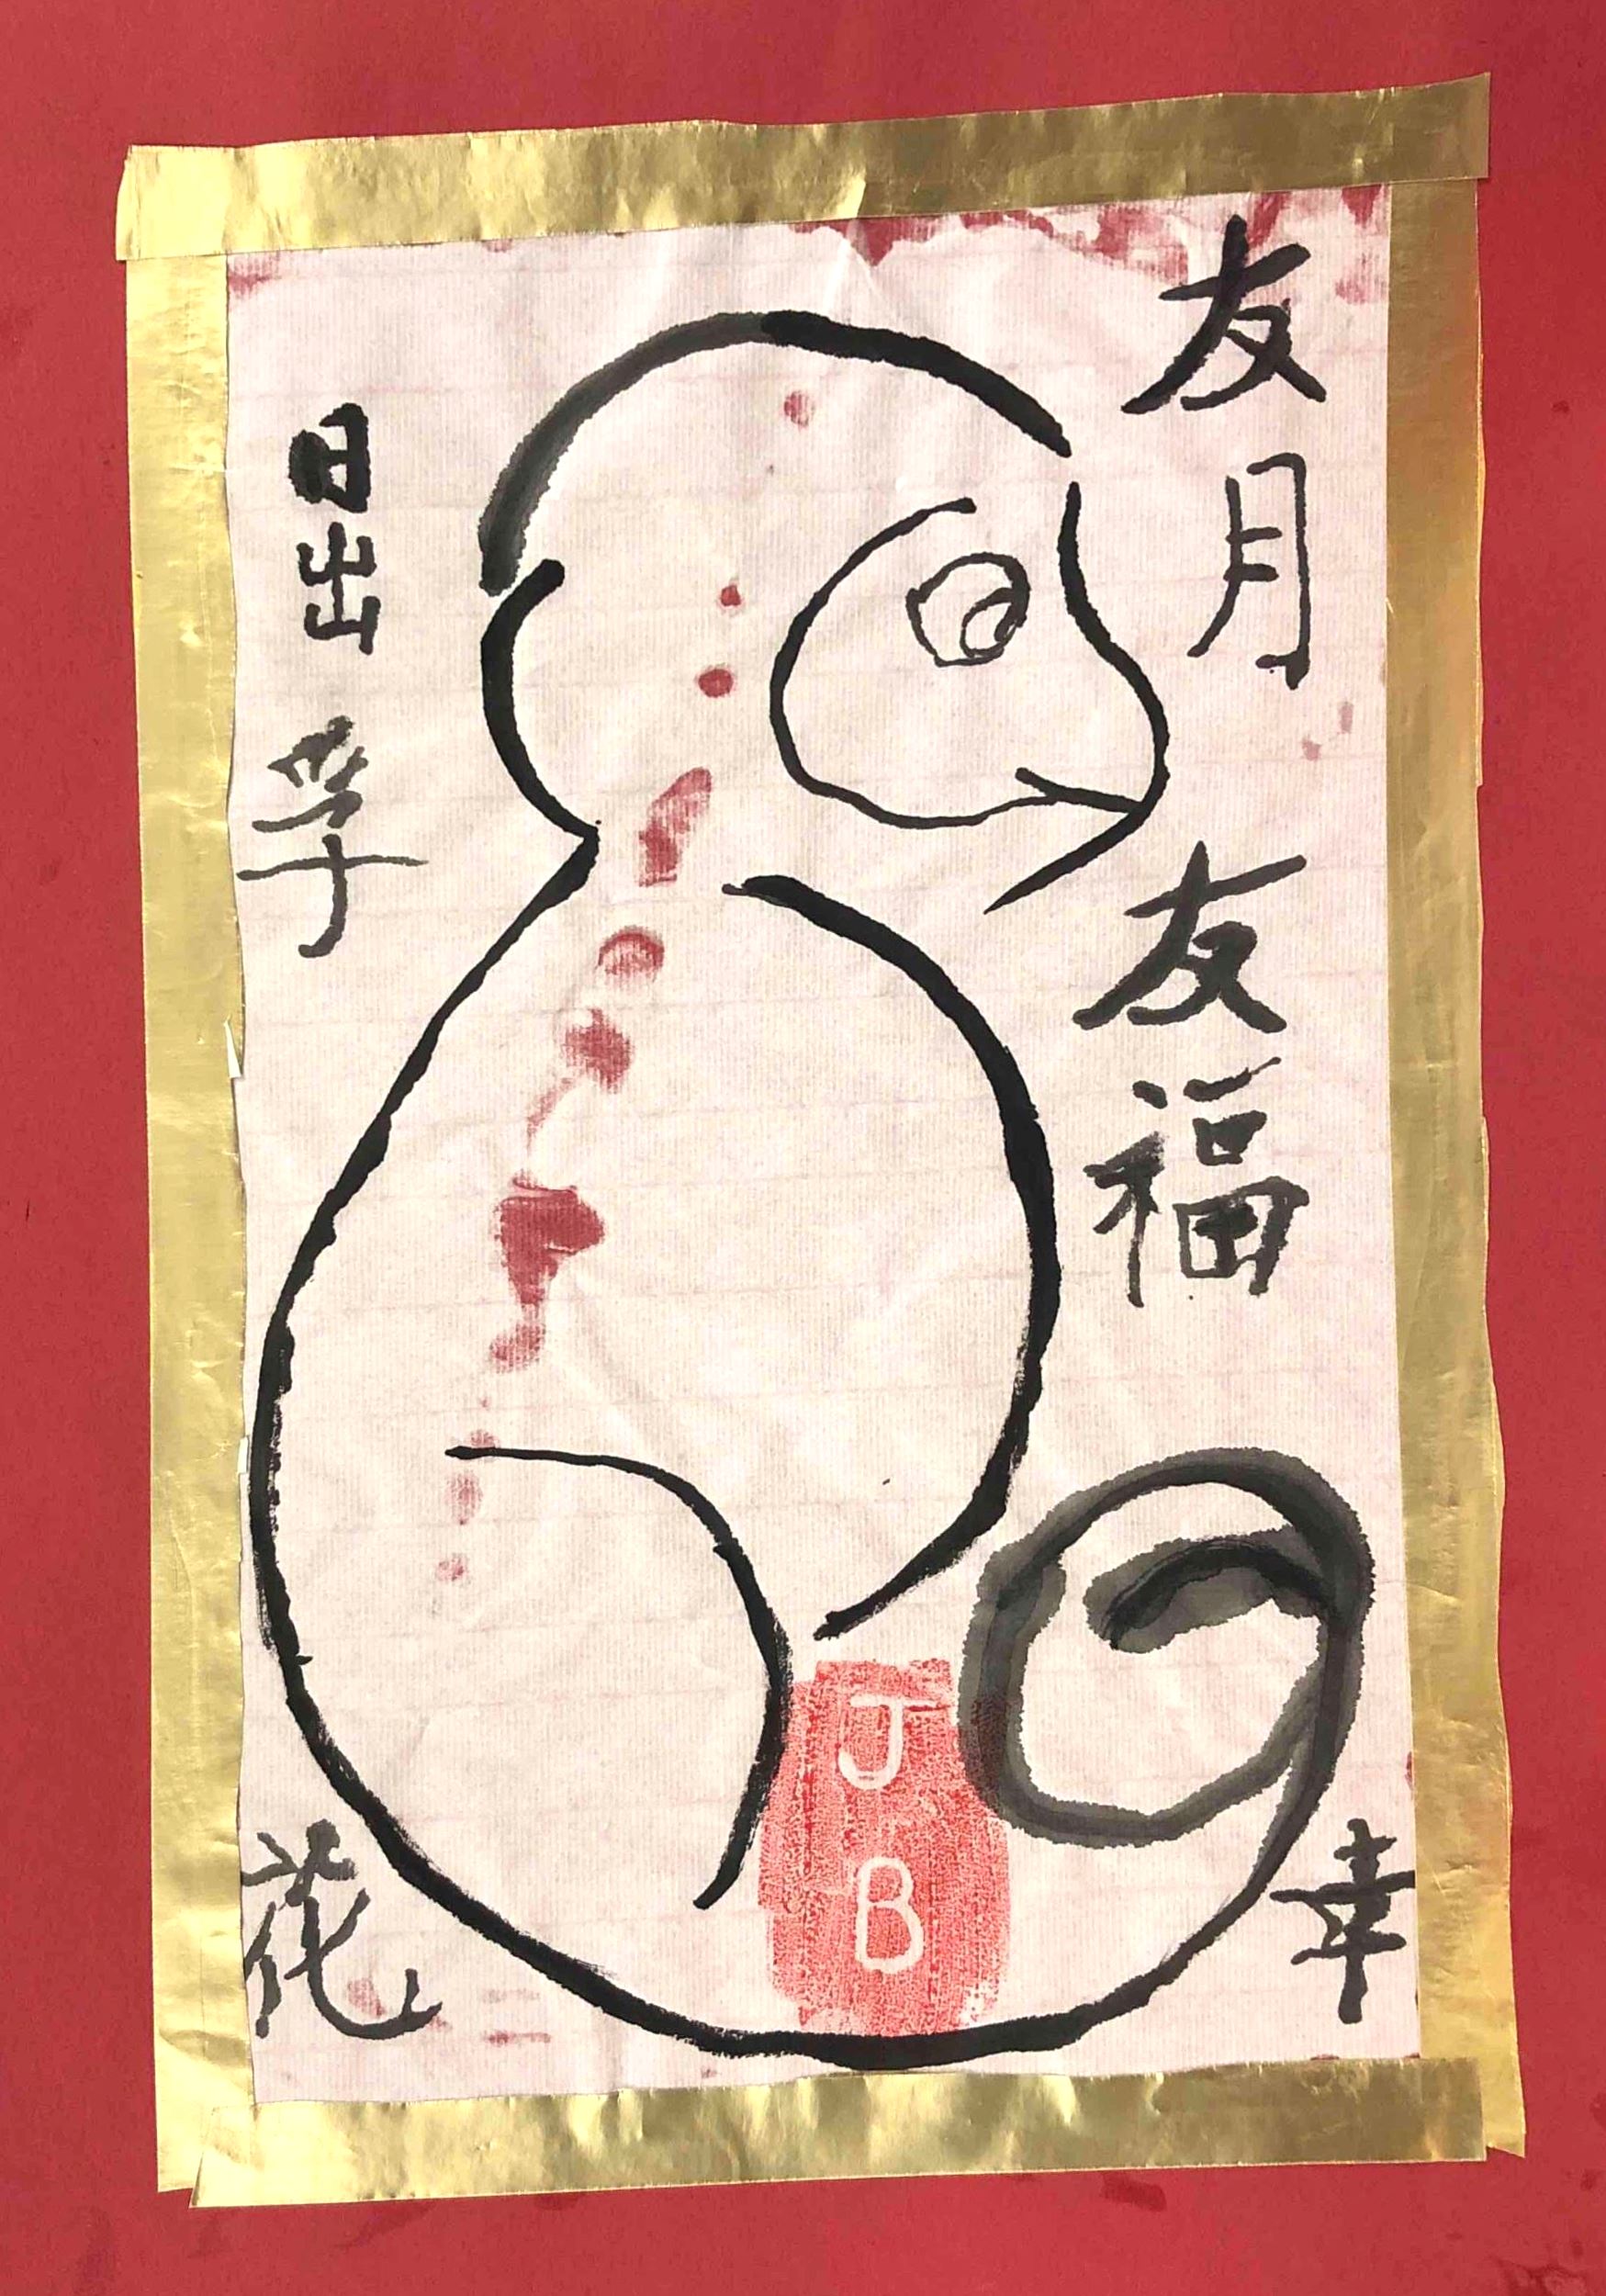 友月
友福
幸
日出
学
花
J
B